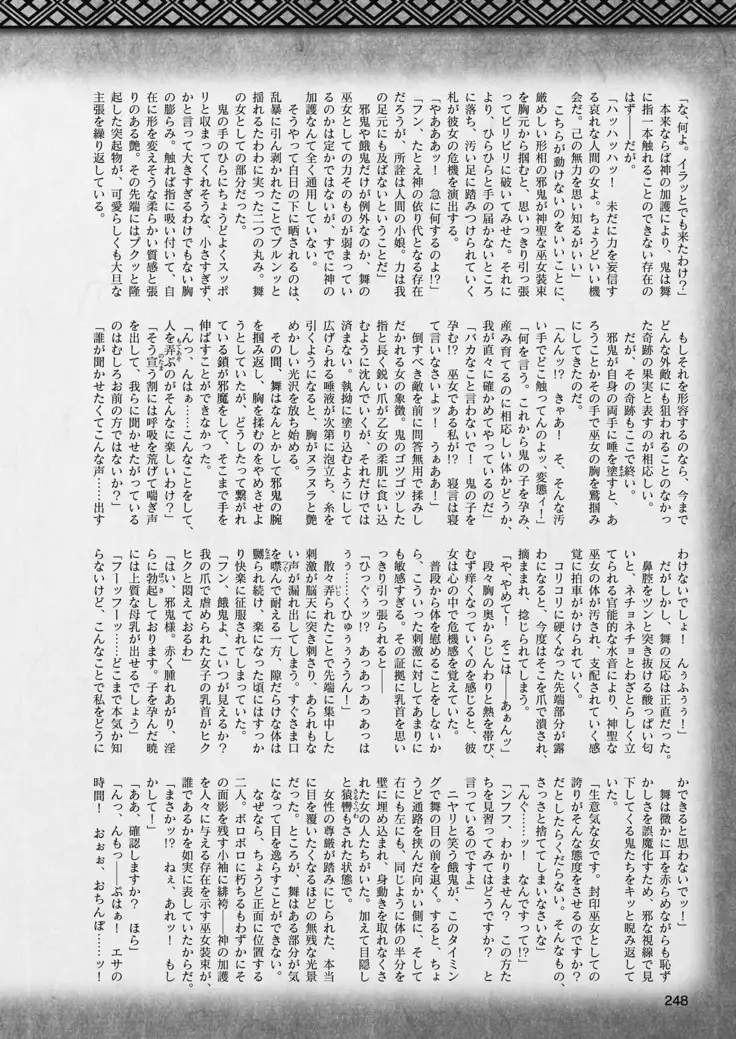 「な、何よ。イラッとでも来たわけ?」
　本来ならば神の加護により、鬼は舞
に指一本触れることのできない存在の
はず――だが。
「ハッハッハッ!　未だに力を妄信す
る哀れな人間の女よ。ちょうどいい機
会だ。己の無力を思い知るがいい」
　こちらが動けないのをいいことに、
厳めしい形相の邪鬼が神聖な巫女装束
を胸元から掴むと、思いっきり引っ張
ってビリビリに破いてみせた。それに
より、ひらひらと手の届かないところ
に落ち、汚い足に踏みつけられていく
札が彼女の危機を演出する。
「やあああッ!　急に何するのよ!?」
「フン、たとえ神の依り代となる存在
だろうが、所詮は人間の小娘。力は我
の足元にも及ばないということだ」
　邪鬼や餓鬼だけが例外なのか、舞の
巫女としての力そのものが弱まってい
るのかは定かではないが、すでに神の
加護なんて全く通用していない。
　そうやって白日の下に晒されるのは、
乱暴に引ん剥かれたことでブルンッと
揺れるたわわに実った二つの丸み。舞
の女としての部分だった。
　鬼の手のひらにちょうどよくスッポ
リと収まってくれそうな、小さすぎず、
かと言って大きすぎるわけでもない胸
の膨らみ。触れば指に吸い付いて、自
在に形を変えそうな柔らかい質感と張
りのある艶。その先端にはプクッと隆
起した突起物が、可愛らしくも大胆な
主張を繰り返している。
　もしそれを形容するのなら、今まで
どんな外敵にも狙われることのなかっ
た奇跡の果実と表すのが相応しい。
　だが、その奇跡もここで終い。
　邪鬼が自身の両手に唾を塗すと、あ
ろうことかその手で巫女の胸を鷲掴み
にしてきたのだ。
「んんッ!?　きゃあ!　そ、そんな汚
い手でどこ触ってんのよッ、変態ィ!」
「何を言う。これから鬼の子を孕み、
産み育てるのに相応しい体かどうか、
我が直々に確かめてやっているのだ」
「バカなこと言わないで!　鬼の子を
孕む!?　巫女である私が!?　寝言は寝
て言いなさいよッ!　うぁああ!」
　倒すべき敵を前に問答無用で揉みし
だかれる女の象徴。鬼のゴツゴツした
指と長く鋭い爪が乙女の柔肌に食い込
むように沈んでいくが、それだけでは
済まない。執拗に塗り込むようにして
広げられる唾液が次第に泡立ち、糸を
引くようになると、胸がヌラヌラと艶
めかしい光沢を放ち始める。
　その間、舞はなんとかして邪鬼の腕
を掴み返し、胸を揉むのをやめさせよ
うとしていたが、どうしたって繋がれ
ている鎖が邪魔をして、そこまで手を
伸ばすことができなかった。
「んっ、んはぁ……こんなことをして、
人を弄ぶのがそんなに楽しいわけ?」
「そう宣う割には呼吸を荒げて喘ぎ声
を出して、我らに聞かせたがっている
のはむしろお前の方ではないか?」
「誰が聞かせたくてこんな声……出す
わけないでしょ!　んぅふぅぅ!」
　だがしかし、舞の反応は正直だった。
　鼻腔をツンと突き抜ける酸っぱい匂
いと、ネチョネチョとわざとらしく立
てられる官能的な水音により、神聖な
巫女の体が汚され、支配されていく感
覚に拍車がかけられていく。
　コリコリに硬くなった先端部分が露
わになると、今度はそこを爪で潰され、
摘ままれ、捻じられてしまう。
「や、やめて!　そこは――あぁんッ」
　段々胸の奥からじんわりと熱を帯び、
むず痒くなっていくのを感じると、彼
女は心の中で危機感を覚えていた。
　普段から体を慰めることをしないか
ら、こういった刺激に対してあまりに
も敏感すぎる。その証拠に乳首を思い
っきり引っ張られると――
「ひっぐぅッ!?　あっあっあっあっは
ぅぅ……くひゅぅぅううん!」
　散々弄られたことで先端に集中した
刺激が脳天に突き刺さり、あられもな
い声が漏れ出してしまう。すぐさま口
を噤んで耐える一方、隙だらけな体は
嬲られ続け、楽になった頃にはすっか
り快楽に征服されてしまっていた。
「フン、餓鬼よ、こいつが見えるか?
我の爪で虐められた女子の乳首がヒク
ヒクと悶えておるわ」
「はい、邪鬼様。赤く腫れあがり、淫
らに勃起しております。子を孕んだ暁
には上質な母乳が出せるでしょう」
「フーッフーッ……どこまで本気か知
らないけど、こんなことで私をどうに
かできると思わないでッ!」
　舞は微かに耳を赤らめながらも恥ず
かしさを誤魔化すため、邪な視線で見
下してくる鬼たちをキッと睨み返して
いた。
「生意気な女です。封印巫女としての
誇りがそんな態度をさせるのですか?
だとしたらくだらない。そんなもの、
さっさと捨ててしまいなさいな」
「んぐ……ッ!　なんですって!?」
「ンフフ、わかりません?　この方た
ちを見習ってみてはどうですか?　と
言っているのですよ」
　ニヤリと笑う餓鬼が、このタイミン
グで舞の目の前を退く。すると、ちょ
うど通路を挟んだ向かい側に、そして
右にも左にも、同じように体の半分を
壁に埋め込まれ、身動きを取れなくさ
れた女の人たちがいた。加えて目隠し
と猿轡もされた状態で。
　女性の尊厳が踏みにじられた、本当
に目を覆いたくなるほどの無残な光景
だった。ところが、舞はある部分が気
になって目を逸らすことができない。
　なぜなら、ちょうど正面に位置する
二人。ボロボロに朽ちるもわずかにそ
の面影を残す小袖に緋袴――神の加護
を人々に与える存在を示す巫女装束が、
誰であるかを如実に表していたからだ。
「まさかッ!?　ねぇ、あれッ!　もし
かして!」
「ああ、確認しますか?　ほら」
「んっ、んもっ――ぷはぁ!　エサの
時間!　おぉぉ、おちんぽ……ッ!
248